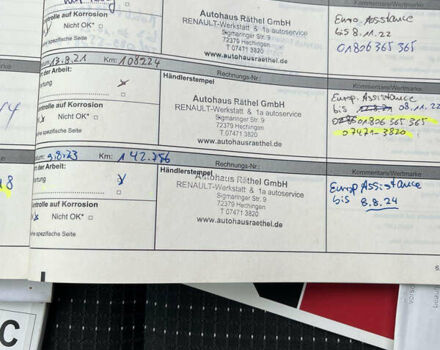 Autohaus Räthel GmbH
RENAULT-Werkstatt & 1a autoservice
Sigmaringer Str. 9
72379 Hechingen
T 07471 3820
www.autohausraethel.de
ntrolle auf Korrosion
Nicht OK*
he spezifische Seite
Euro. Assistance
bis 8.11.22
01806 365 365
13.8.21
Km: 108224
Rechnungs-Nr.:
Kommentare/Wertmarke
rt der Arbeit:
artung
Händlerstempel
Autohaus Räthel GmbH
RENAULT-Werkstatt & 1a autoservice
Sigmaringer Str. 9
72379 Hechingen
T 07471 3820
www.autohausraethel.de
ntrolle auf Korrosion
Nicht OK*
he spezifische Seite
Europ. Assistance
bis 08.11.22
01806 365 365
07471-3820
9.8.23
Km: 142.786
Rechnungs-Nr.:
Kommentare/Wertmarke
rt der Arbeit:
artung
Händlerstempel
Autohaus Räthel GmbH
RENAULT-Werkstatt & 1a autoservice
Sigmaringer Str. 9
72379 Hechingen
T 07471 3820
www.autohausraethel.de
ntrolle auf Korrosion
Nicht OK*
he spezifische Seite
Europ Assistance
bis 8.8.24
C